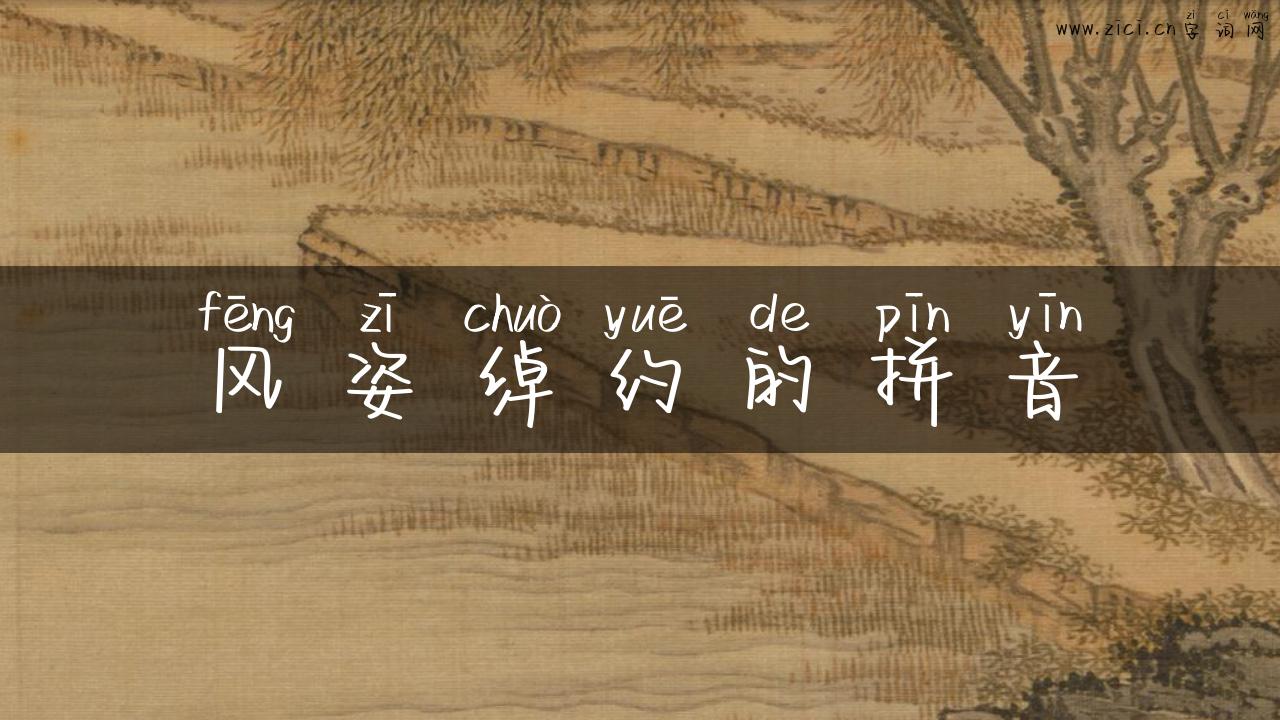 zì cí wǎng
www.zici.cn字词网
fēng zī chuò yuē de pīn yīn
风姿绰约的拼音